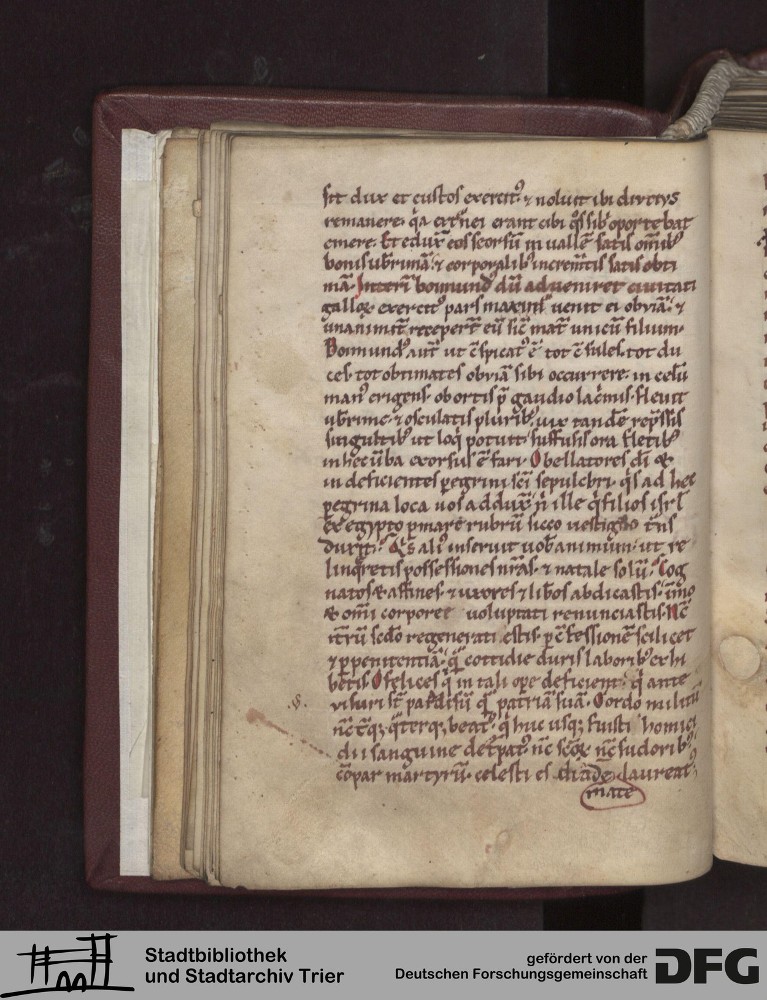 sit dux et custos exercit⁹. ⁊ noluit ibi diutius
remanere. q̓a ext̓nei erant cibi q̓s sib̓ oportebat
emere. Et eduxͭ eos seorsū in vallē satis om̄ib⁹
bonis ub̓rimā. ⁊ corporalib⁹ increm̄tis satis obti
mā. Interī boimund⁹ dū adveniret civitati
galloꝝ exercit⁹ pars maxima venit ei obviā. ⁊
unanimit̄ recepert̄ eū sic̄ mat̄ unicū filium.
Boimund⁹ aut̄ ut c̄spicat⁹ ē tot c̄sules. tot du
ces. tot obtimates obviā sibi occurrere. in celū
man⁹ erigens. obortis p̄ gaudio lac̓mis. flevit
ub̓rime. ⁊ osculatis plurib⁹. vix tandē rep̄ssis
singultib⁹ ut loq̓ potuit. suffusis ora fletib⁹
in hec v̄ba exorsus ē fari. O bellatores di ⁊
indeficientes pegrini sc̄i sepulchri. q̓s ad hec
pegrina loca vos adduxͭ n̓ ille q̓ filios isrl̄
ex egypto p mare rubrū sicco vestigio
duxit. Q̓s ali⁹ inseruit vob̓ animum. ut re
linq̓retis possessiones nr̄as. ⁊ natale solū. Cog
natos ⁊ affines. ⁊ uxores ⁊ lib̓os abdicastis. īmo
⁊ om̄i corporee voluptati renunciastis. Nc̄
it̄rū sc̄do regenerati estis. p c̄fessionē scilicet
⁊ p penitentiā. q̄ cottidie duris laborib⁹ exhi
betis. O felices q̓ in tali ope deficient. q̓ ante
visuri st̄ pardisū q̄ patriā suā. O ordo militū
nc̄ t̓q; q̓terq; beat⁹. q̓ huc usq; fuisti homici
dii sanguine det̓pat⁹. nc̄ sc̄oꝝ nc̄ sudorib⁹
c̄par martyrū. celesti es diademate laureat⁹
.S.
Stadtbibliothek
und Stadtarchiv Trier
gefördert von der
Deutschen Forschungsgemeinschaft DFG